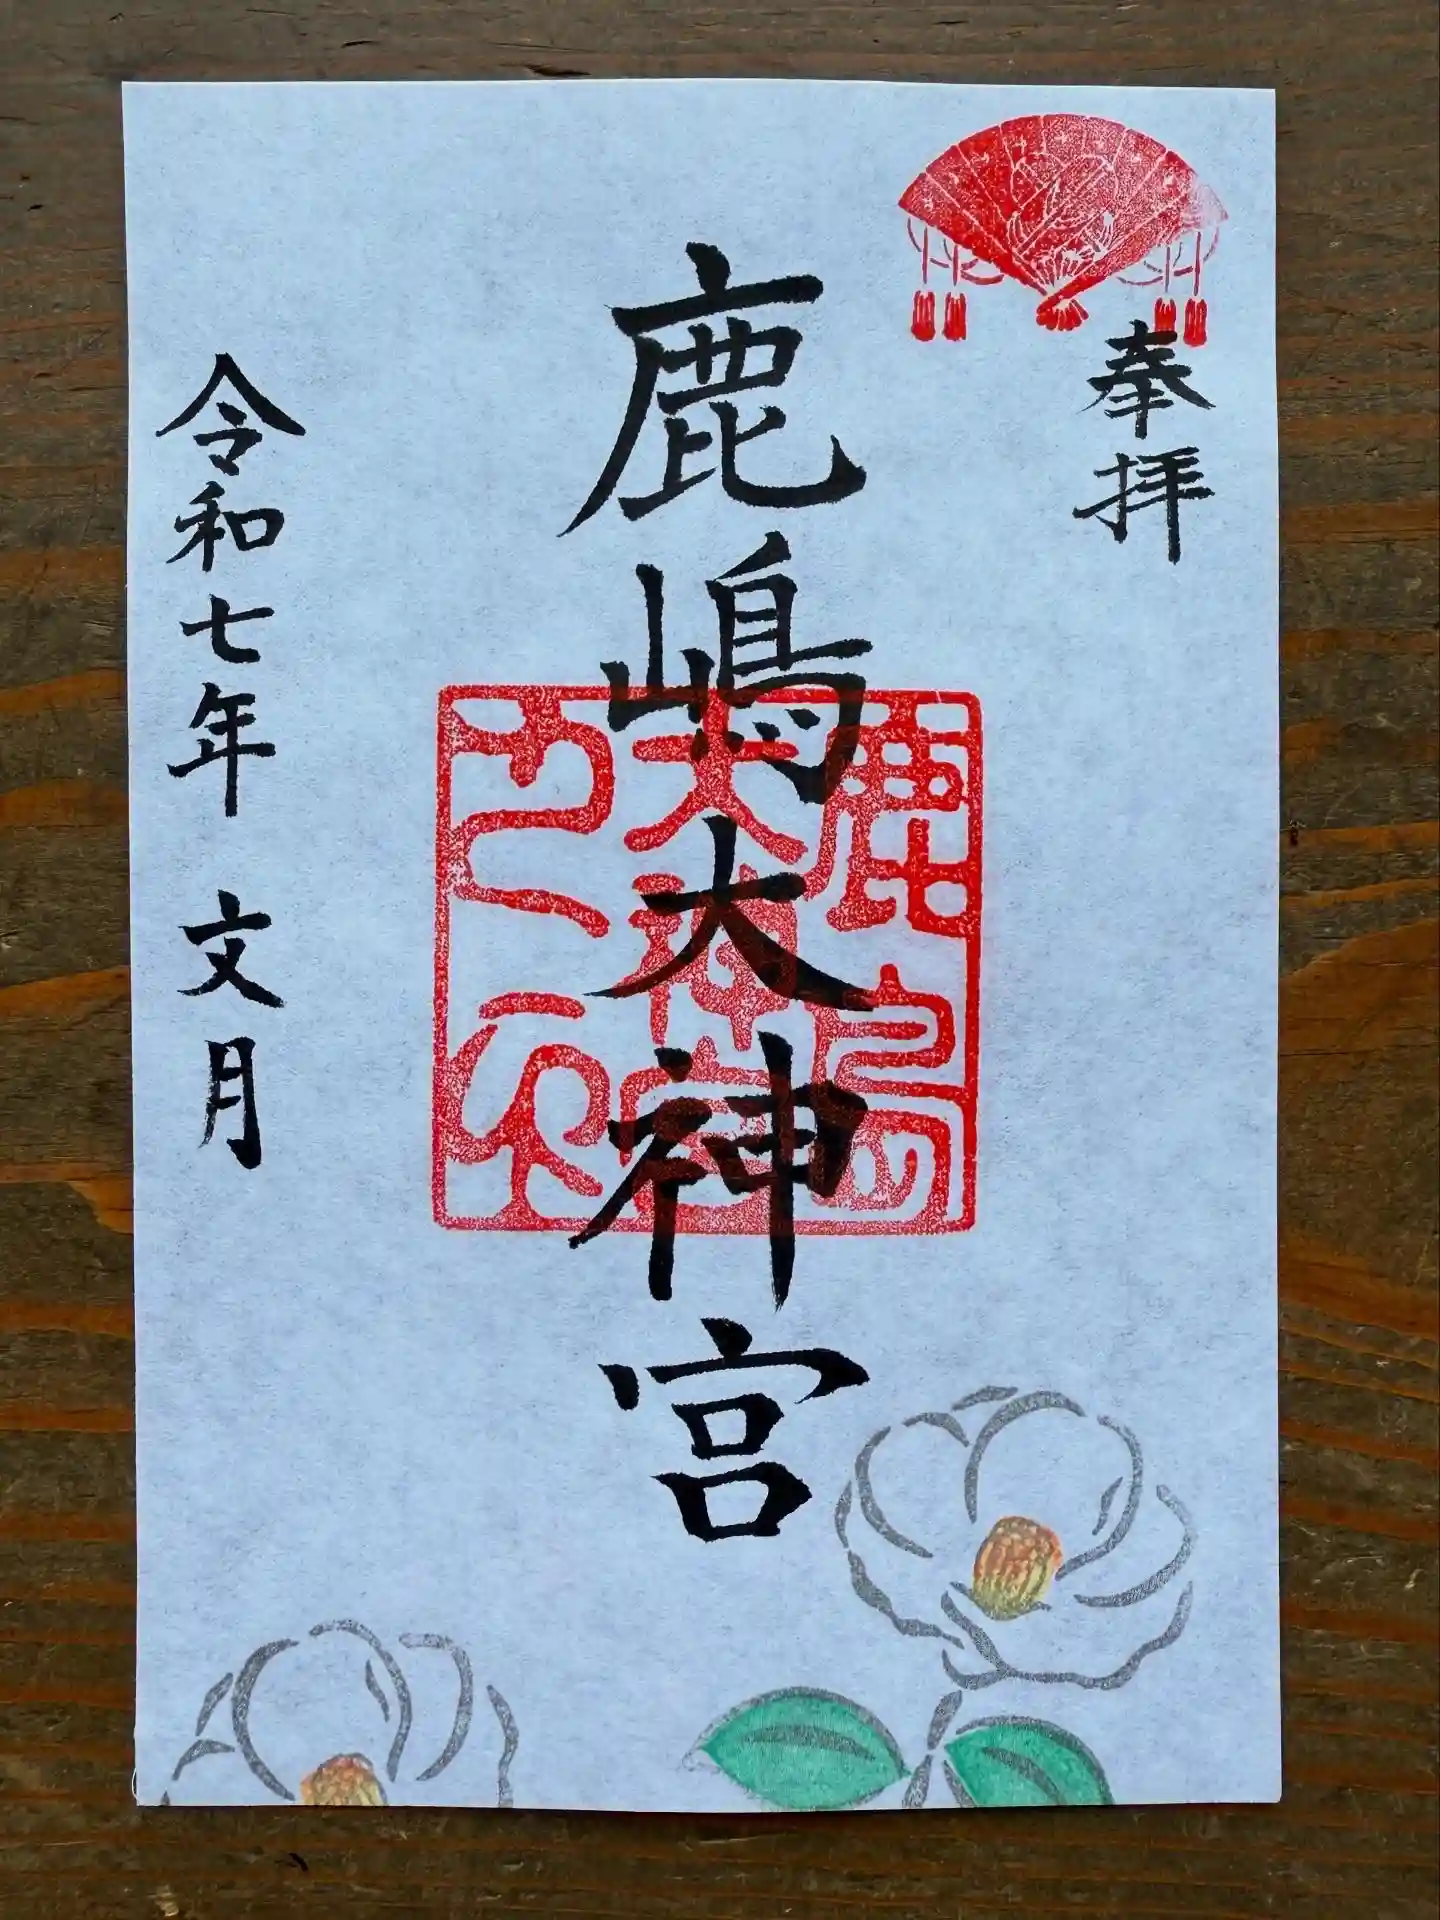 奉拝
鹿嶋大神宮
鹿島
大神宮
之印
令和七年 文月